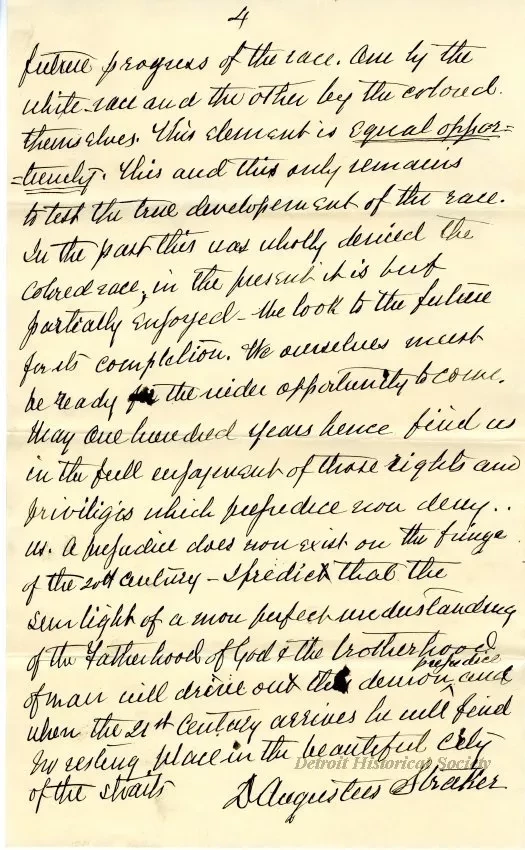 4
future progress of the race. One by the
white race and the other by the colored
themselves. This element is equal oppor-
-tunity. This and this only remains
to test the true developement of the race.
In the past this was wholly denied the
colored race, in the present it is but
partially enjoyed - We look to the future
for its completion. We ourselves must
be ready for the wider opportunity to come.
May one hundred years hence find us
in the full enjoyment of those rights and
priviliges which prejudice now deny..
us. A prejudice does now exist on the fringe
of the 20th century - I predict that the
sun light of a mor perfect understanding
of the Fatherhood of God & the brotherhood
of man will drive out the demon prejudice and
when the 21st Century arrives he will find
no resting place in the beautiful city
of the straits
D Augustus Straker
Detroit Historical Society